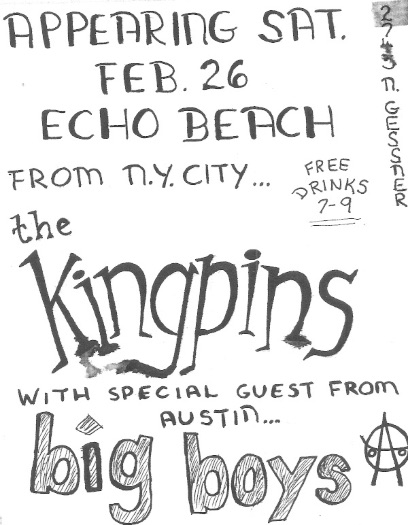 APPEARING SAT.
FEB. 26
ECHO BEACH
FROM N.Y. CITY...
FREE
DRINKS
7-9
the
Kingpins
WITH SPECIAL GUEST FROM
AUSTIN...
big boys
N. GESSNER